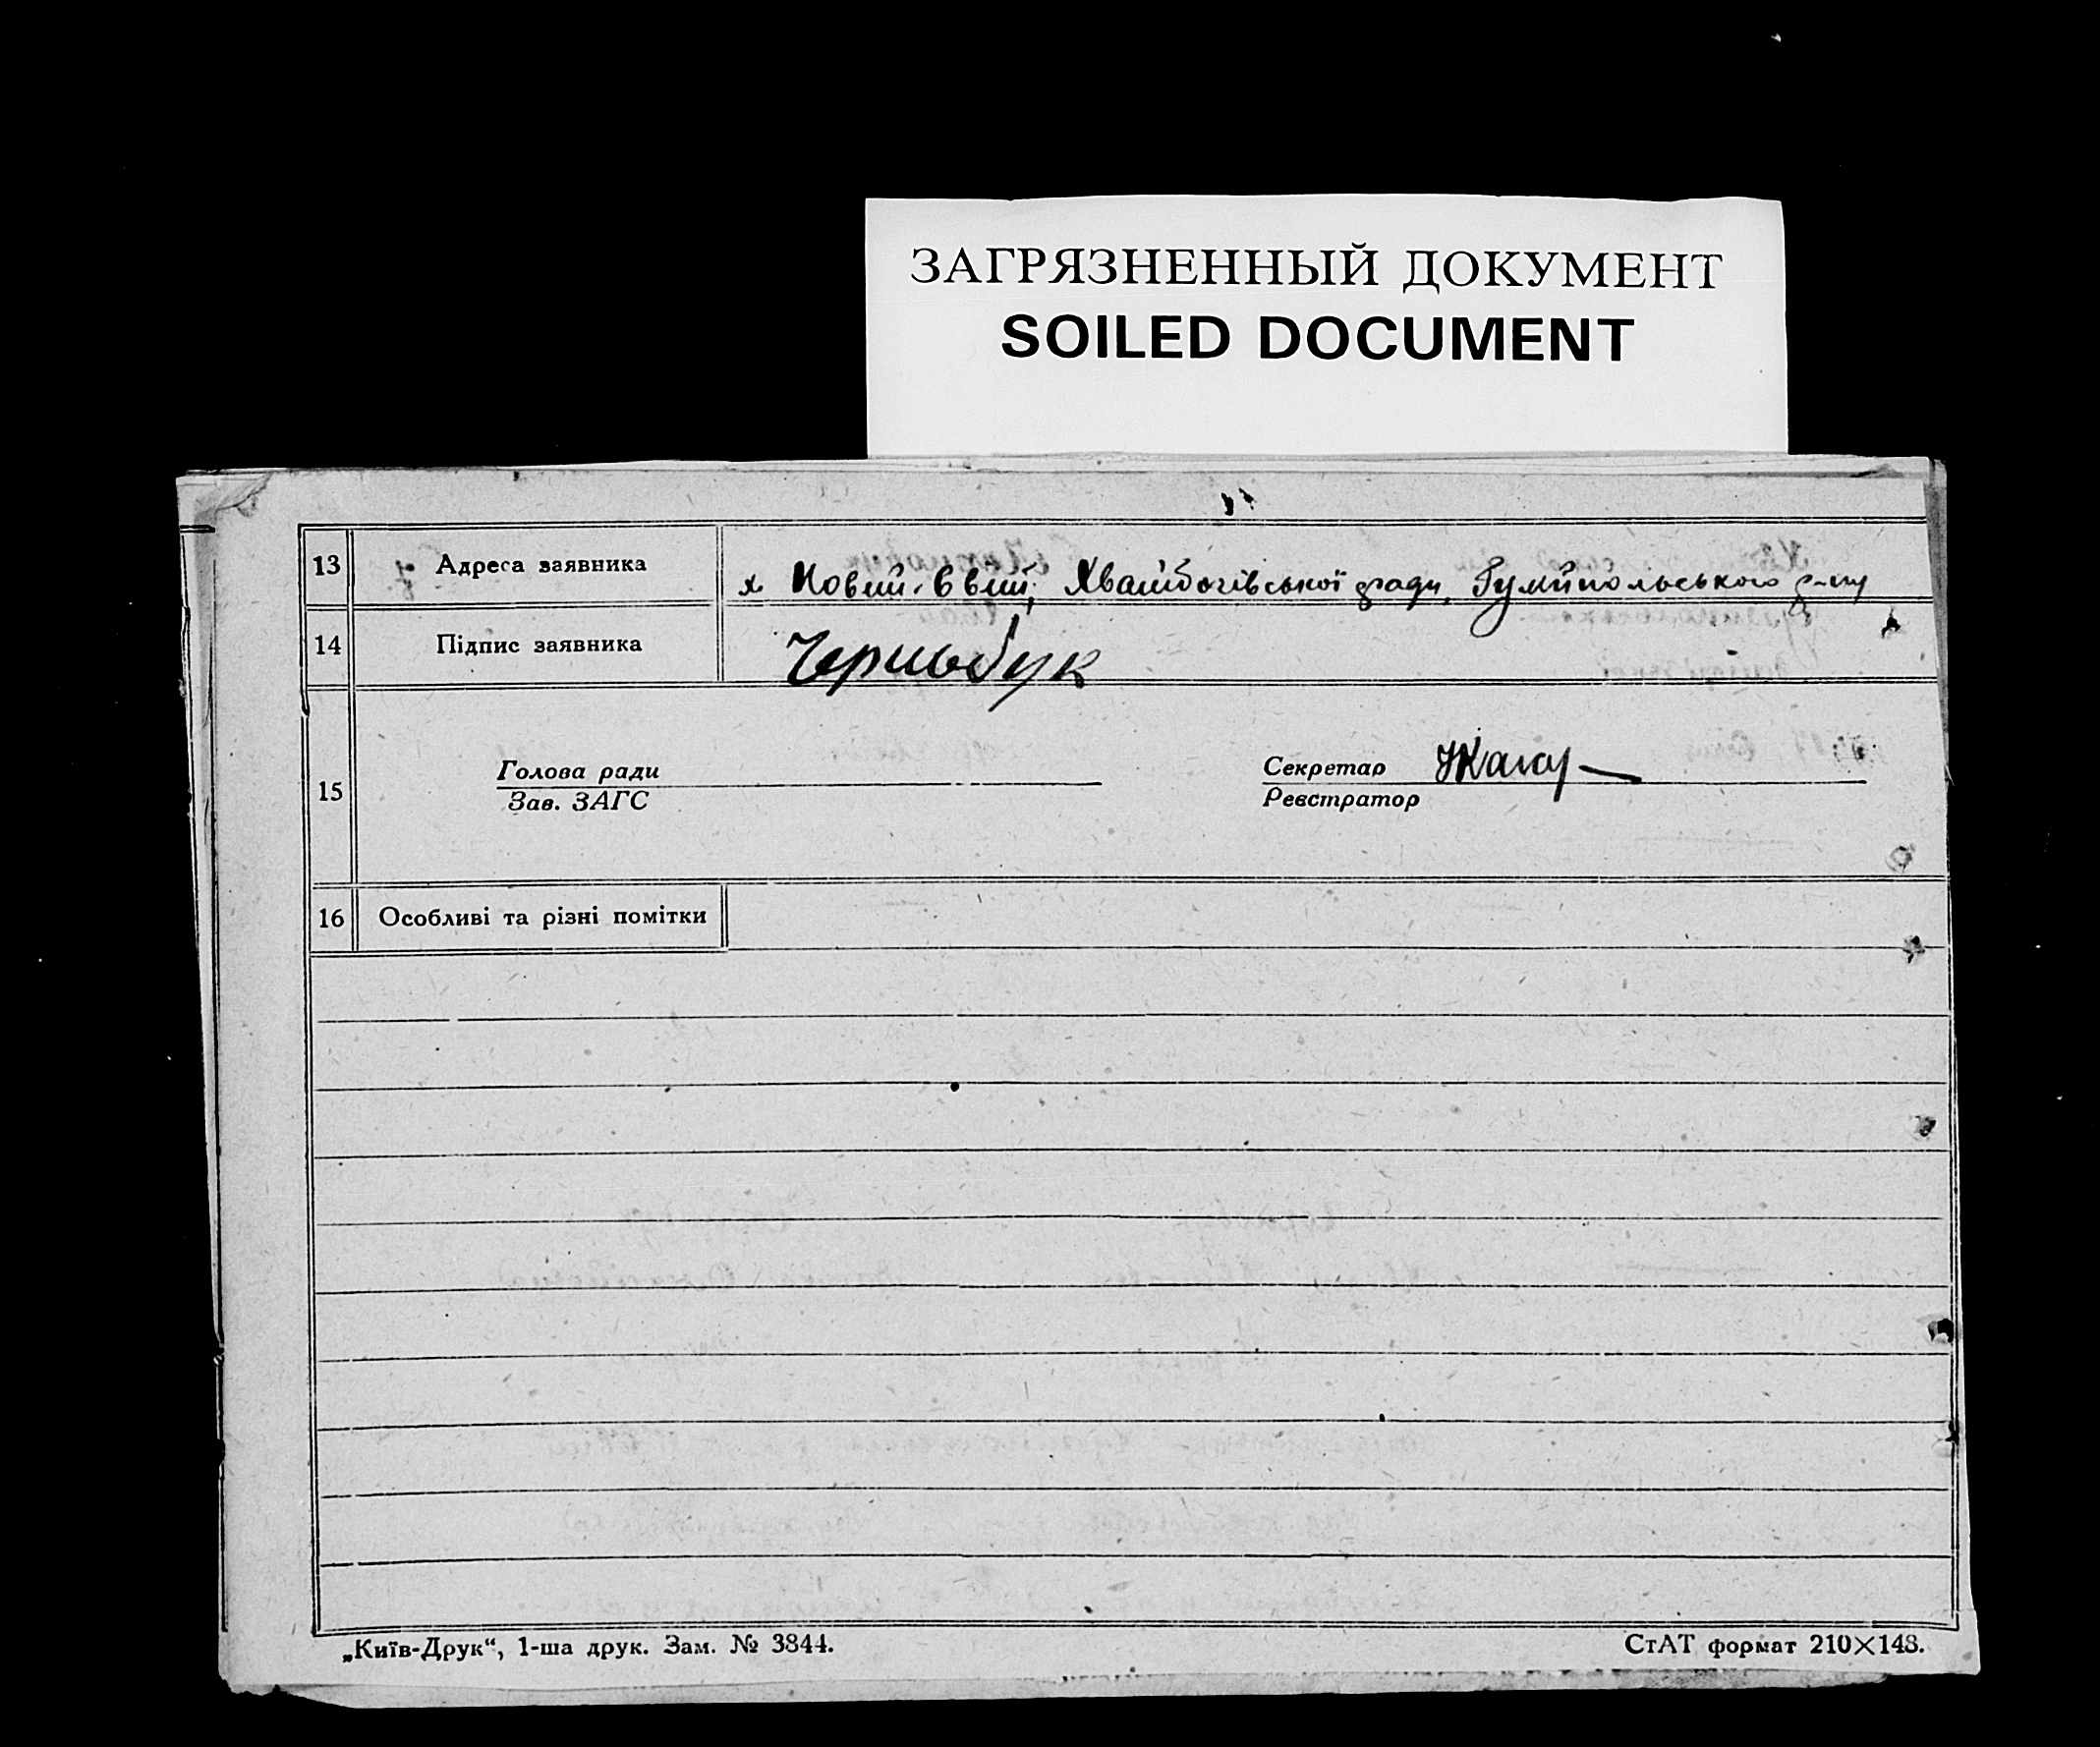 ЗАГРЯЗНЕННЫЙ ДОКУМЕНТ
SOILED DOCUMENT
13 Адреса заявника х Новий Світ, ради,
14 Підпис заявника
Голова ради Секретар
15
Зав. ЗАГС Реєстратор
16 Особливі та різні помітки
„Київ-Друк“, 1-ша друк. Зам. № 3844. СтАТ формат 210×148.